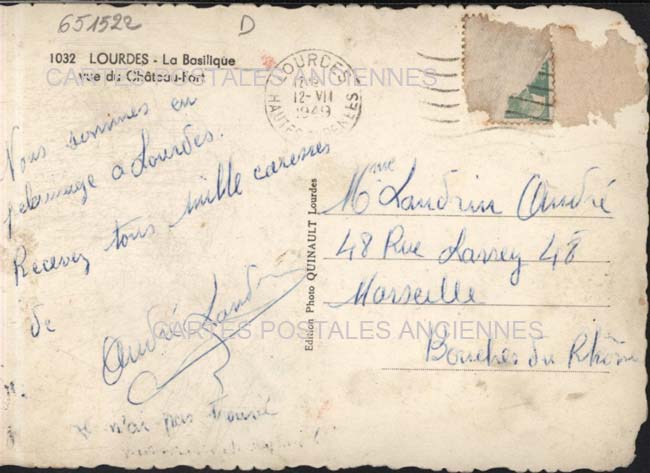 651522 D
1032 LOURDES - La Basilique
vue du Château-Fort
CARTES POSTALES ANCIENNES
LOURDES
12-VII
1949
HAUTES-PYRENEES
Nous sommes en
pelerinage a Lourdes.
Recevez tous mille caresses
de
André Landrin
je n'ai pas trouvé
Edition Photo QUINAULT Lourdes
Mme Landrin André
48 Rue Larrey 48
Marseille
Bouches du Rhône
CARTES POSTALES ANCIENNES